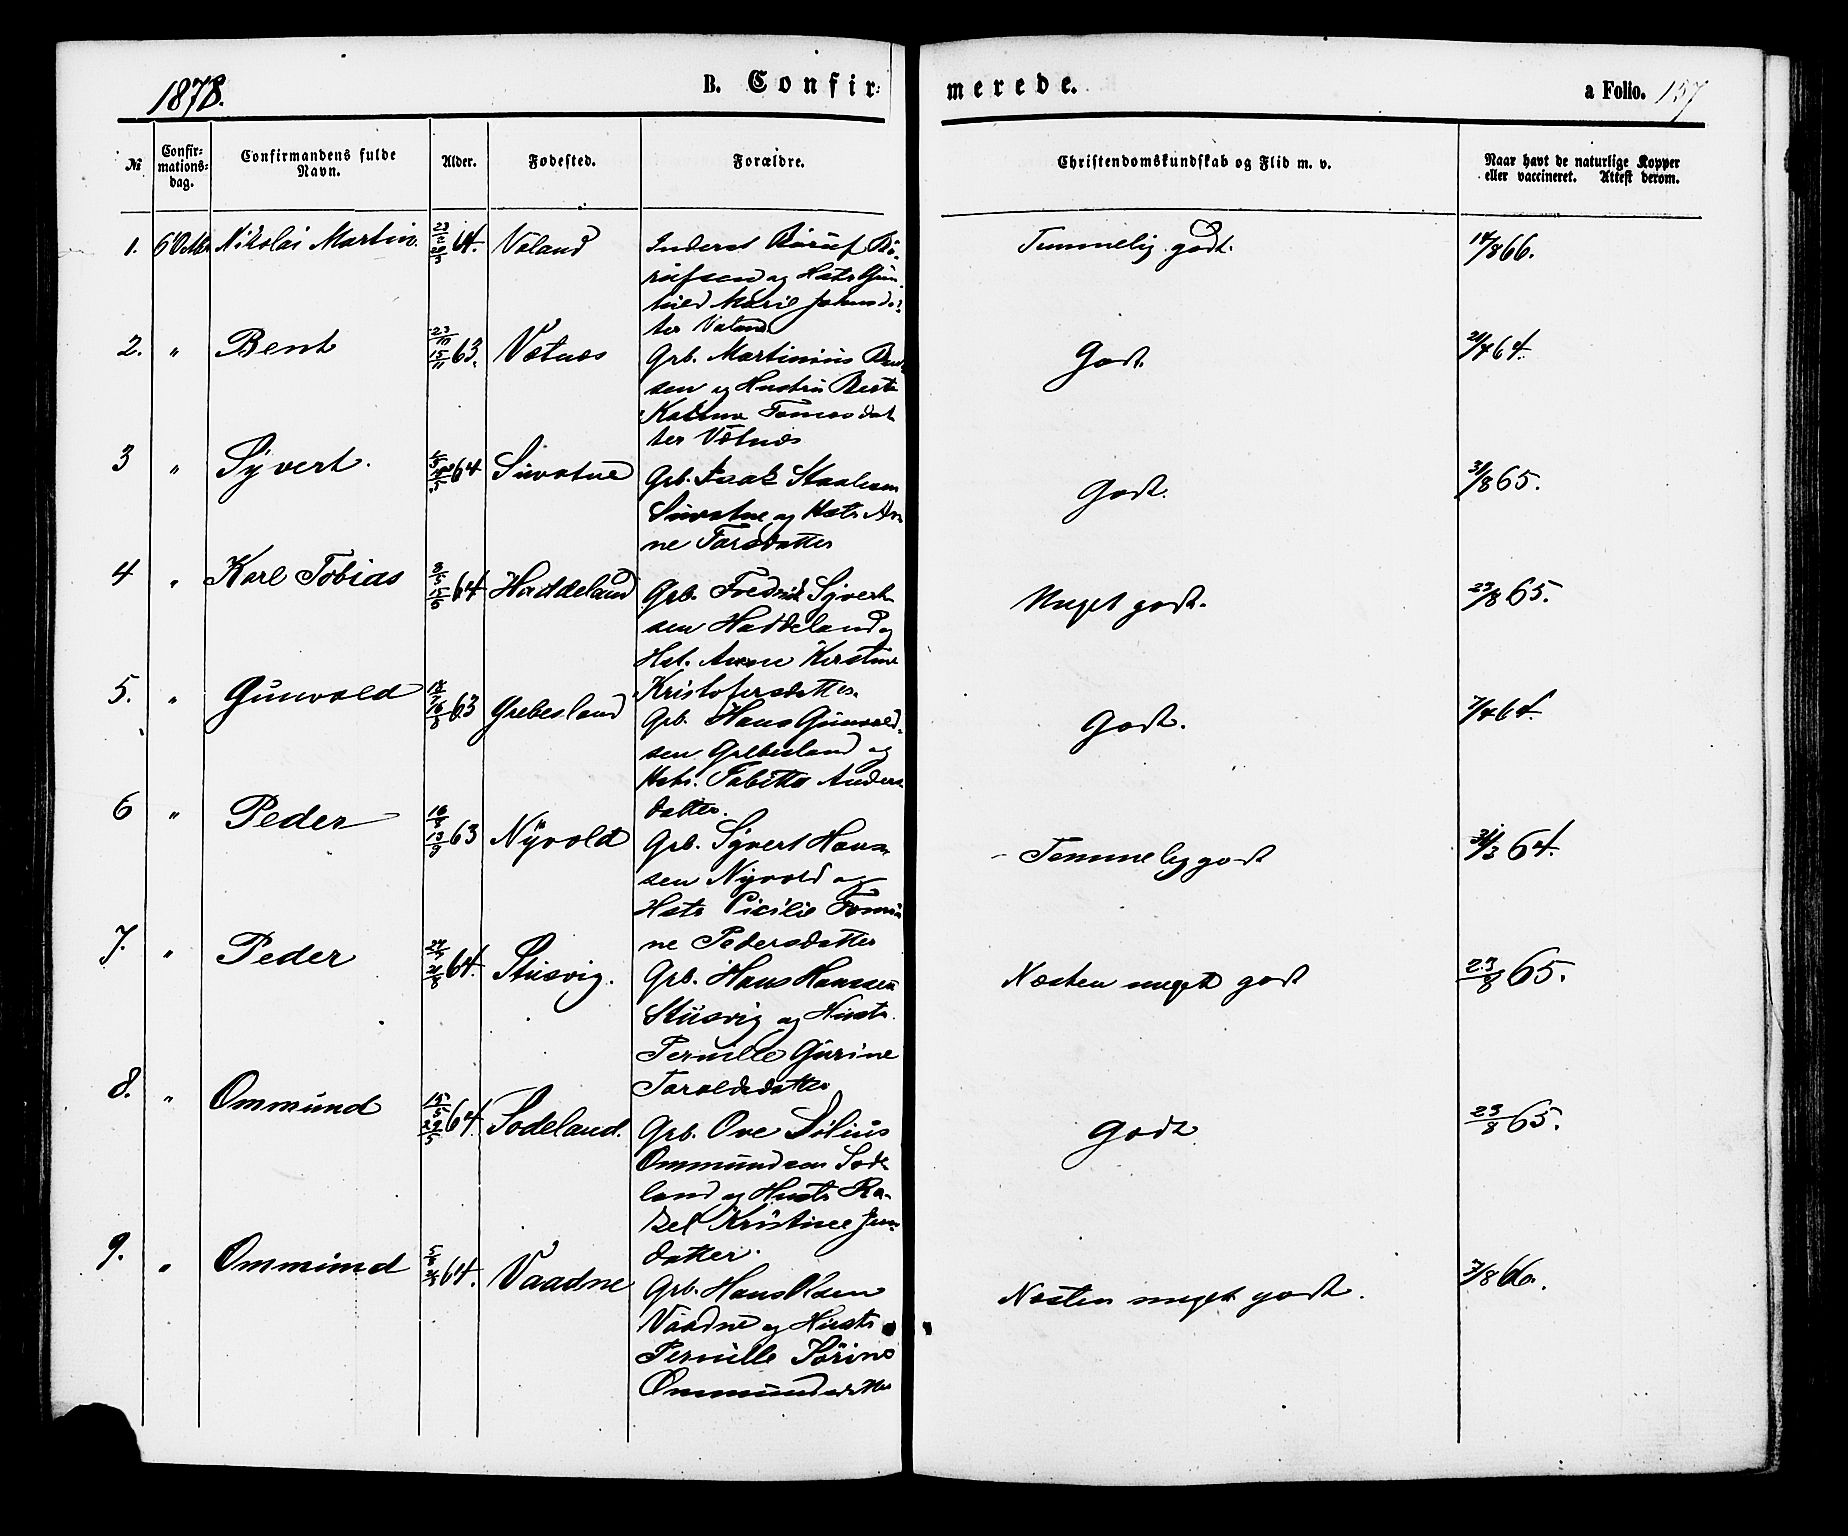 1878. B. Confir- merede. a Folio. 157
№ Confir-mations-dag. Confirmandens fulde Navn. Alder. Fødested. Forældre. Christendomskundskab og Flid m. v. Naar havt de naturlige Kopper eller vaccineret. Attest derom.
1. 6 Oktbr Nikolai Martin. 64. Valand Inderst
og Hstr Gun
hild Marie
ter Valand
Temmelig godt. 66.
2. " Bent 23/10 15/11 63. Vætnes Grb. Martinius
sen og Hustru
Tomasdat
ter Vætnes
Godt. 64.
3 " Syvert. 64 Suvatne Grb. Isak Staalesen
Suvatne og Hstr An
ne Tarsdatter
Godt. 31/8 65.
4 " Karl Tobias 64 Haddeland Grb. Fredrik Syvert
sen Haddeland og
Hst. Anne Kirstine
Kristofersdatter.
Meget godt. 23/8 65.
5. " Gunvald 63 Grebesland Grb. Hans Gunvald-
sen Grebesland og
Hstr. Tabitha Anders
datter.
Godt. 7/4 64.
6 " Peder 63 Nyvold Grb. Syvert Han
sen Nyvold og
Hstr Cicilie Tomi
ne Pedersdatter
Temmelig godt 64.
7. " Peder 64. Stusvig. Grb. Hans Hansen
Stusvig og Hustr.
Pernille Gurine
Taraldsdatter
Næsten meget godt 23/8 65.
8. " Ommund 15/5 29/5 64. Sodeland. Grb. Ove Tølius
Ommundsen Sode
land og Hustr Ra-
kel Kristine Jens
datter.
Godt 23/8 65.
9. " Ommund 64. Vaadne Grb. Hans Olsen
Vaadne og Hustr
Pernille Sørine
Ommundsdatter
Næsten meget godt. 7/8 66.